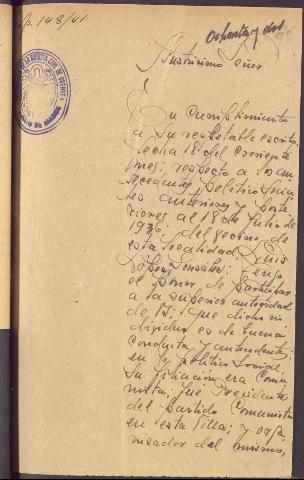 Sp. 148/41
Ochenta y dos
Ilustrísimo Señor
En cumplimiento
a su respetable escrito
fecha 18 del corriente
mes; respecto a los an
tecedentes político socia
les anteriores y poste
riores al 18 de Julio de
1936. del vecino de
esta localidad Luis
López González; tengo
el honor de participar
a la superior autoridad
de V.I. que dicho in
dividuo es de buena
conducta y antecedentes
en lo político social,
su filiación era Comu
nista, fue Presidente
del partido Comunista
en esta Villa; y orga
nizador del mismo,